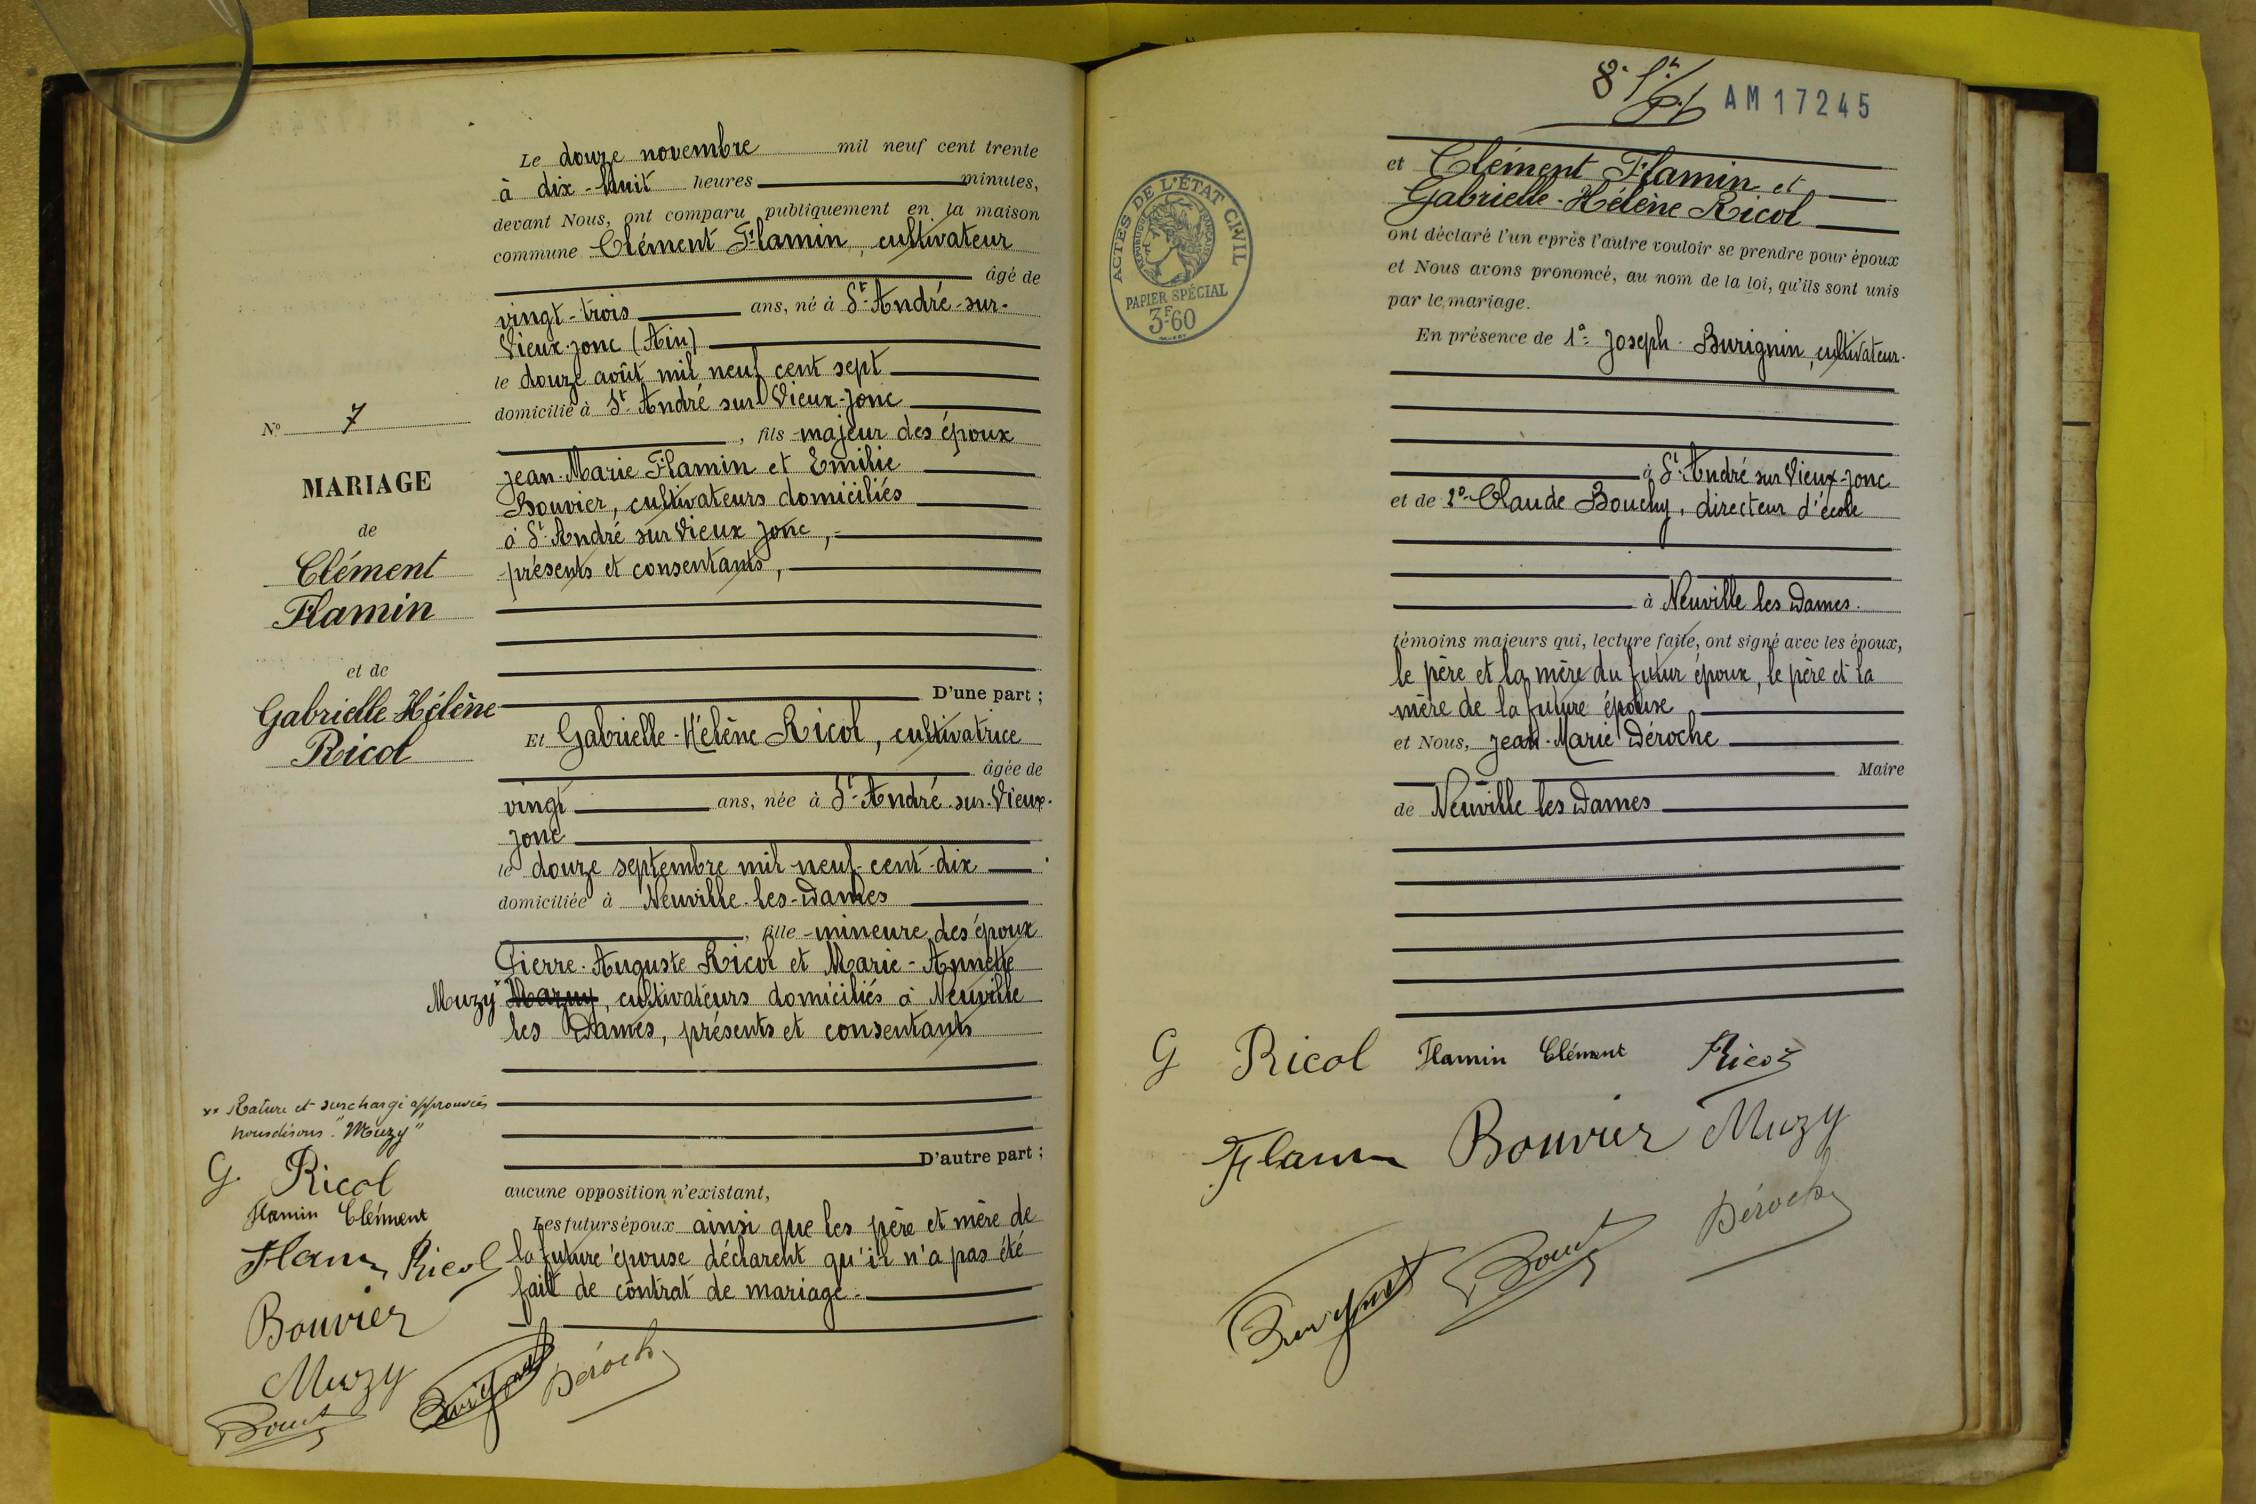 Le douze novembre mil neuf cent trente
à dix-huit heures minutes,
devant Nous, ont comparu publiquement en la maison
commune Clément Flamin, cultivateur
âgé de
vingt-trois ans, né à St-André-sur-
Vieux-Jonc (Ain)
le douze août mil neuf cent sept
domicilié à St-André sur Vieux-Jonc
, fils majeur des époux
Jean-Marie Flamin et Emilie
Bouvier, cultivateurs domiciliés
à St-André sur Vieux Jonc,
présents et consentants,
D'une part ;
Et Gabrielle-Hélène Ricol, cultivatrice
âgée de
vingt ans, née à St-André-sur-Vieux-
Jonc
le douze septembre mil neuf cent dix
domiciliée à Neuville-les-Dames
, fille mineure des époux
Pierre-Auguste Ricol et Marie-Annette
Muzy, cultivateurs domiciliés à Neuville
les Dames, présents et consentants
D'autre part ;
aucune opposition n'existant,
Les futurs époux ainsi que les père et mère de
la future épouse déclarent qu'il n'a pas été
fait de contrat de mariage.
N° 7
MARIAGE
de
Clément
Flamin
et de
Gabrielle-Hélène
Ricol
Rature et surcharge approuvées
nous disons "Muzy"
G. Ricol
Flamin Clément
Ricol
Bouvier
Muzy
Déroche
AM 17245
ACTES DE L'ÉTAT CIVIL
RÉPUBLIQUE FRANÇAISE
PAPIER SPÉCIAL
3F60
et Clément Flamin et
Gabrielle-Hélène Ricol
ont déclaré l'un après l'autre vouloir se prendre pour époux
et Nous avons prononcé, au nom de la loi, qu'ils sont unis
par le mariage.
En présence de 1° Joseph Burignin, cultivateur
à St-André sur Vieux-Jonc
et de 2° Claude Bouchy, directeur d'école
à Neuville les Dames.
témoins majeurs qui, lecture faite, ont signé avec les époux,
le père et la mère du futur époux, le père et la
mère de la future épouse
et Nous, Jean-Marie Déroche
Maire
de Neuville les Dames
G Ricol Flamin Clément Ricol
Flamin Bouvier Muzy
Déroche